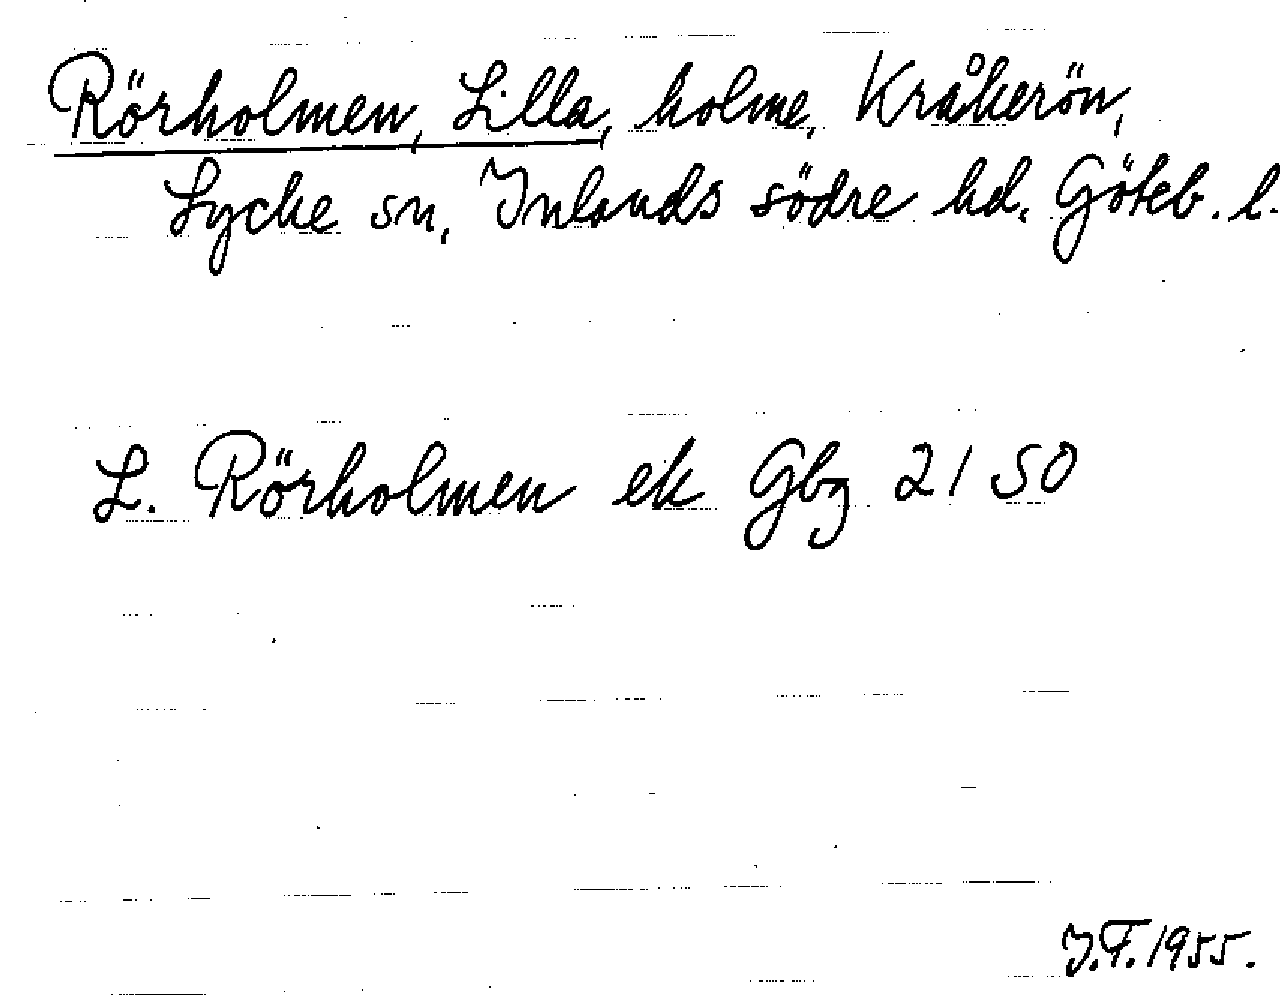 Rörholmen, Lilla, holme, Kråkerön,
Lycke sn, Inlands södre hd. Göteb. l.
L. Rörholmen ek Gbg 21 SO
J.F. 1955.